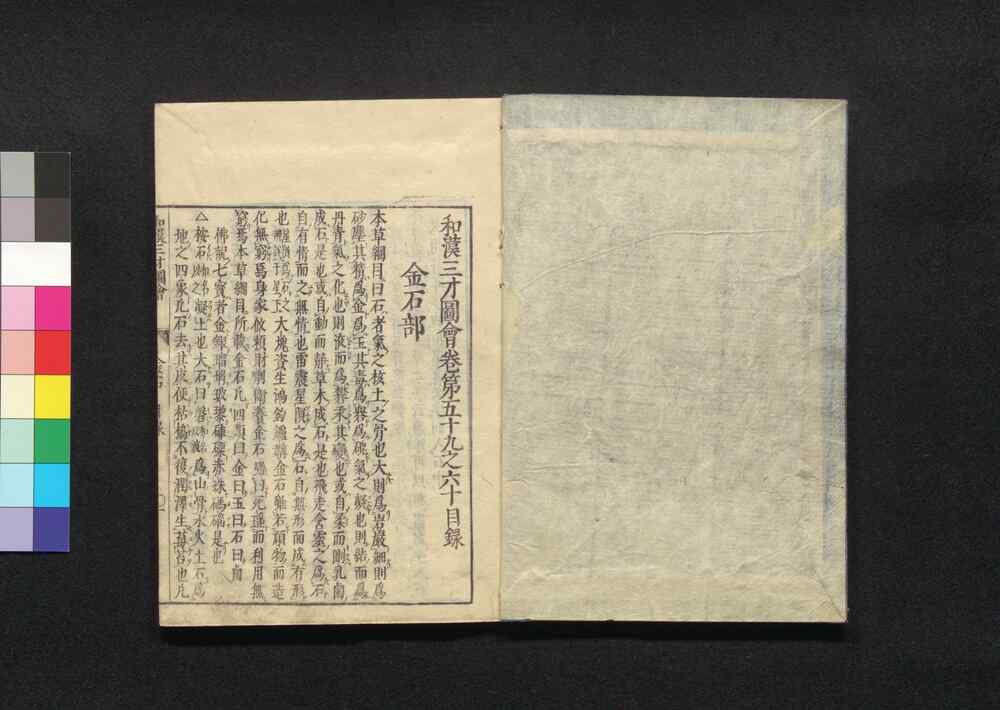 和漢三才圖會卷第五十九之六十目録
金石部
本草綱目曰石者氣之核土之骨也大則爲岩巖細則爲
砂塵其精爲金爲玉其毒爲礜爲砒氣之凝也則結而爲
丹青氣之化也則液而爲礬汞其變也或自柔而剛乳鹵
成石是也或自動而靜草木成石是也飛走含靈之爲石
自有情而之無情也雷震星隕之爲石自無形而成有形
也大塊資生鴻鈞爐韛金石雖若頑物而造
化無窮焉身家攸賴財劑衛養金石雖曰死瑤而利用無
窮焉本草綱目所載金石凡四類曰金曰玉曰石曰鹵
佛説七寶者金銀瑠璃玻瓈硨磲赤珠碼碯是也
△按石凝土也大石曰磐爲山骨水火土石爲
地之四象凡石去其處便枯槁不復潤澤生苔也凡
和漢三才圖會
金石
目録